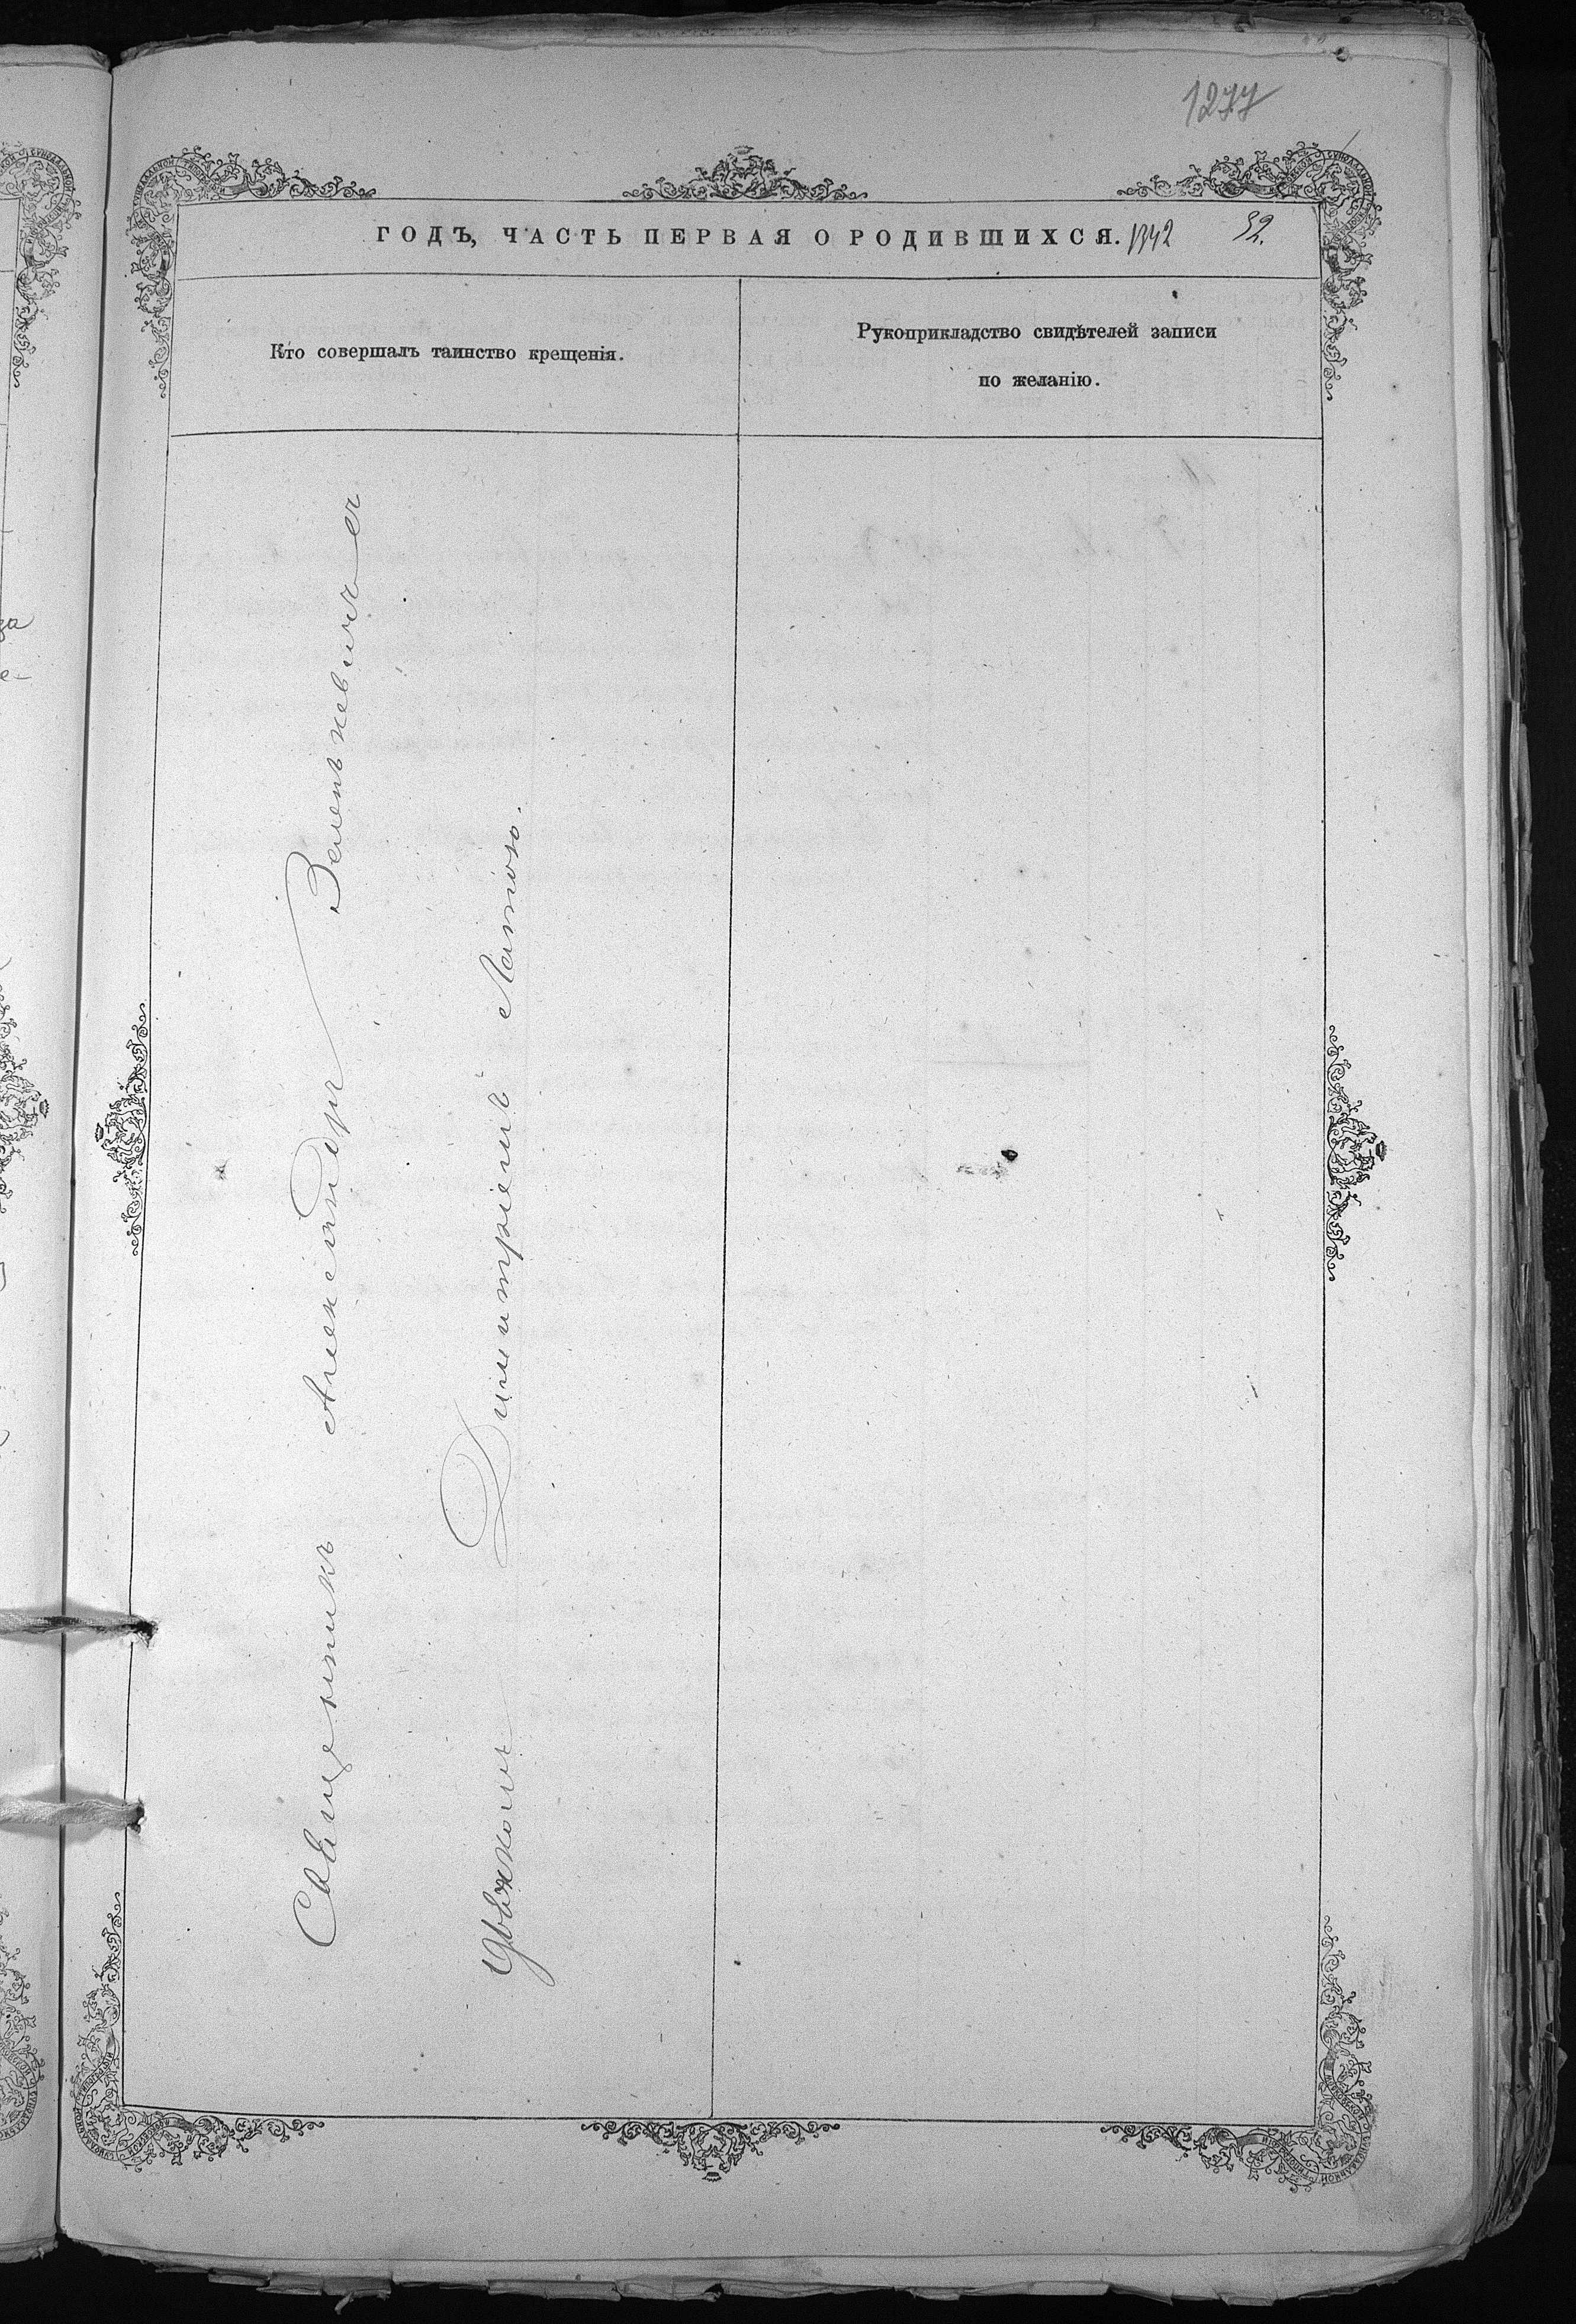 1277
ГОДЪ, ЧАСТЬ ПЕРВАЯ О РОДИВШИХСЯ. 1342 52.
Кто совершалъ таинство крещенія.
Рукоприкладство свидѣтелей записи
по желанію.
Священникъ Александръ Зеленкевичъ
Димитріемъ Лапою.
за